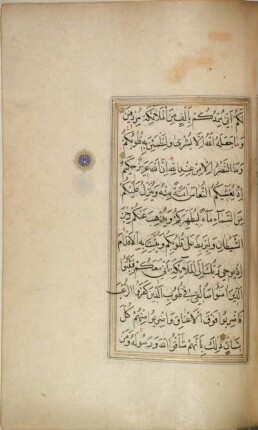 لَكُمْ أَنِّي مُمِدُّكُمْ بِأَلْفٍ مِنَ الْمَلَائِكَةِ مُرْدِفِينَ
وَمَا جَعَلَهُ اللَّهُ إِلَّا بُشْرَى وَلِتَطْمَئِنَّ بِهِ قُلُوبُكُمْ
وَمَا النَّصْرُ إِلَّا مِنْ عِنْدِ اللَّهِ إِنَّ اللَّهَ عَزِيزٌ حَكِيمٌ
إِذْ يُغَشِّيكُمُ النُّعَاسَ أَمَنَةً مِنْهُ وَيُنَزِّلُ عَلَيْكُمْ
مِنَ السَّمَاءِ مَاءً لِيُطَهِّرَكُمْ بِهِ وَيُذْهِبَ عَنْكُمْ رِجْزَ
الشَّيْطَانِ وَلِيَرْبِطَ عَلَى قُلُوبِكُمْ وَيُثَبِّتَ بِهِ الْأَقْدَامَ
إِذْ يُوحِي رَبُّكَ إِلَى الْمَلَائِكَةِ أَنِّي مَعَكُمْ فَثَبِّتُوا
الَّذِينَ آمَنُوا سَأُلْقِي فِي قُلُوبِ الَّذِينَ كَفَرُوا الرُّعْبَ
فَاضْرِبُوا فَوْقَ الْأَعْنَاقِ وَاضْرِبُوا مِنْهُمْ كُلَّ
بَنَانٍ ذَلِكَ بِأَنَّهُمْ شَاقُّوا اللَّهَ وَرَسُولَهُ وَمَنْ